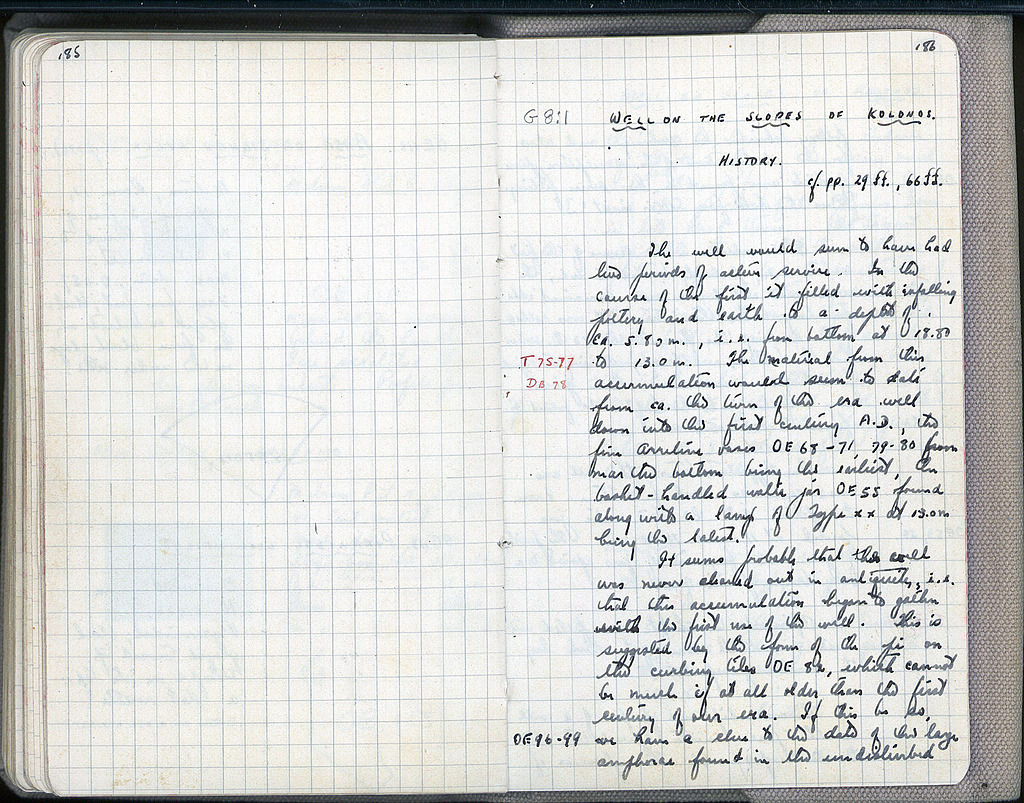 185
186
G 8:1 WELL ON THE SLOPES OF KOLONOS.
HISTORY.
cf. pp. 29 ff., 66 ff.
The well would seem to have had
two periods of active service. In the
course of the first it filled with infalling
pottery and earth to a depth of
ca. 5.80 m., i.e. from bottom at 18.80
T 75-77 to 13.0 m. The material from this
DB 78 accumulation would seem to date
from ca. the turn of the era well
down into the first century A.D., the
fine Arretine vases OE 68-71, 79-80 from
near the bottom being the earliest, the
basket-handled water jar OE 55 found
along with a lamp of Type XX at 13.0 m
being the latest.
It seems probable that the well
was never cleaned out in antiquity, i.e.
that this accumulation began to gather
with the first use of the well. This is
suggested by the form of the on
the curbing tiles OE 82, which cannot
be much if at all older than the first
century of our era. If this be so,
OE 96-99 we have a clue to the date of the large
amphorae found in the undisturbed